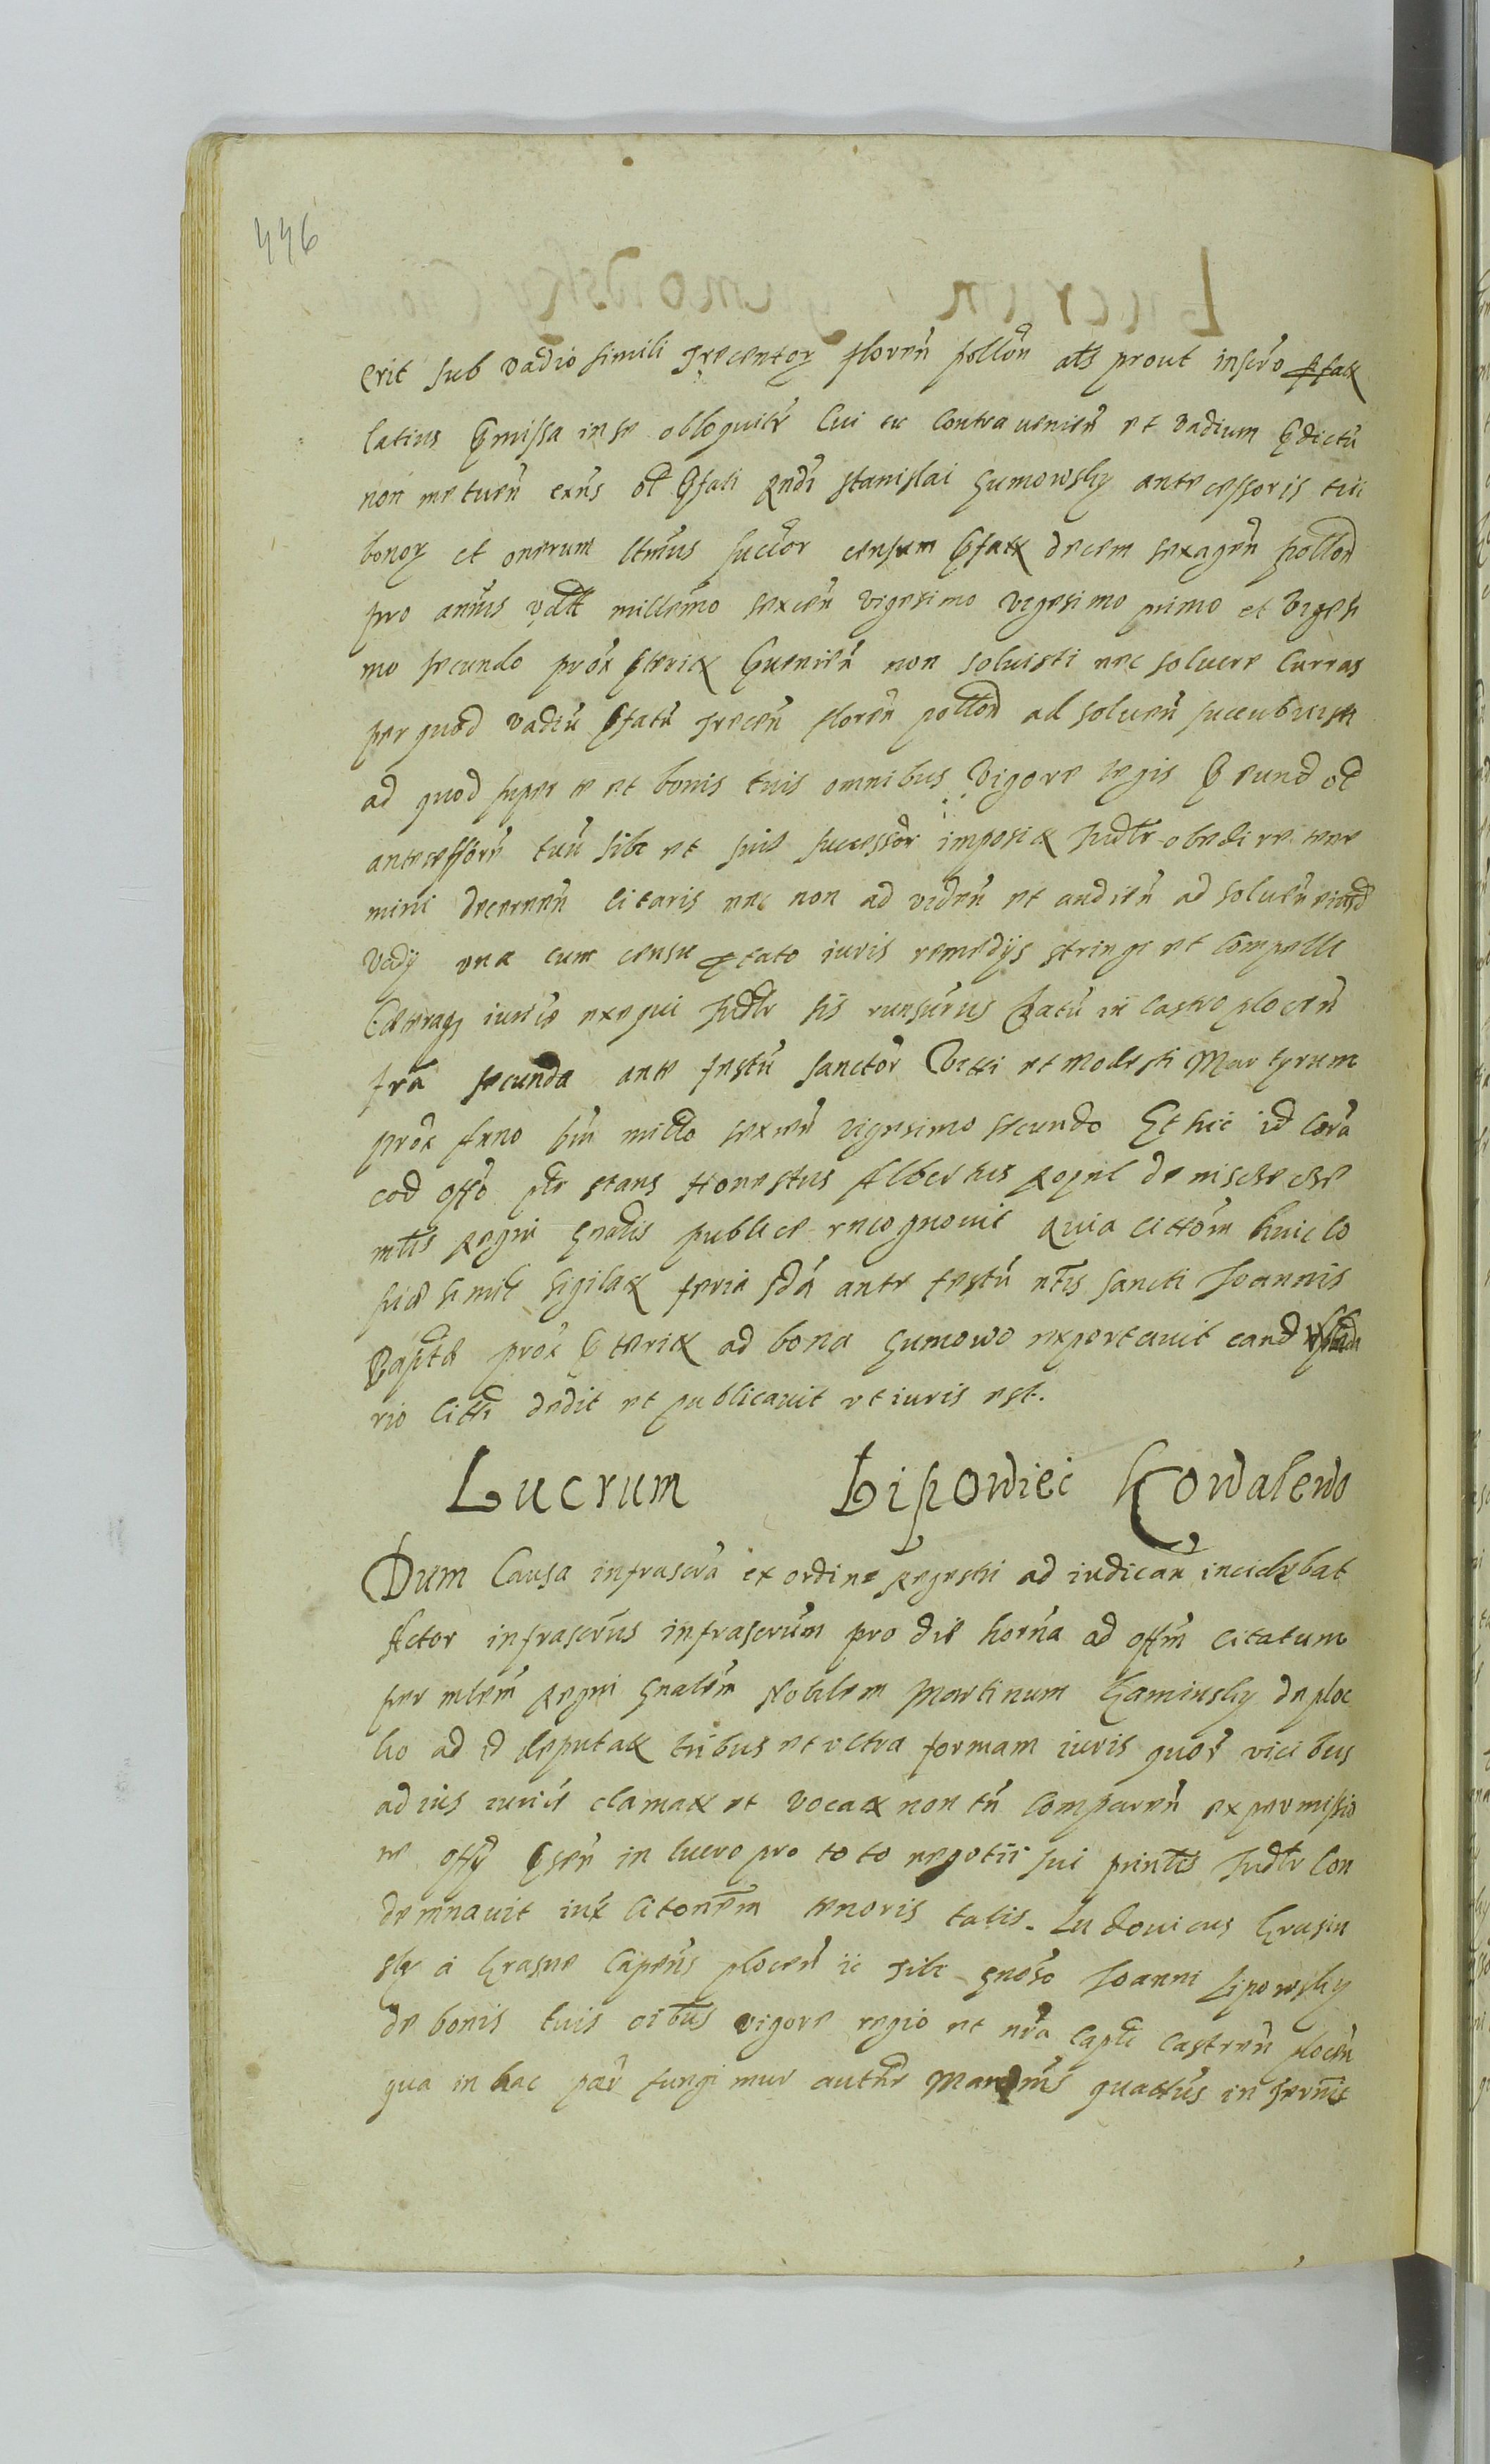 446
erit sub vadio simili trecentor floren̄ pollōn als prout inscrō
latius pmissa in se obloquitr Cui tu Contraueniēn et vadium pdictū
non metuēn exn̄s ol pfati Rndi Stanislai Gumowsky antecessoris tui
bonor et onerum ltm̄us succōr censum pfatt decem sexagēn pollon
pro annis vdtt millēmo sexcēn vigesimo vigesimo primo et vigesi
mo secundo prōx pteritt puenieñ non soluisti nec soluere Curras
per quod vadiū pfatū trecēn florēn pollon ad soluēn succubuisti
ad quod super te et bonis tuis omnibus vigore legis p eund ol
antecessorē tuū sibi et suis successōr imposit Judlr obedire tene
mini decerneēn Citaris nec non ad vidēn et audiēn ad soluēn eiusd
vadij una cum censu ptato iuris remedijs stringi et Compelli
Caeteraq iuris exequi Judlr sis rursurus Datū in Castro plocēn
fra secunda ante festū Sanctōr Viti et Modesti Martyrum
prōx Anno Dni millo sexcēn vigesimo secundo Et hic id Corā
eod offō ptr stans Honestus Albertus
mtis Regni Gnalis publice recognouit Quia Cittōm huic Co
pie simil sigilatt feria 2dá ante festū ntis Sancti Joannis
Baptae prōx pteritt ad bona Gumowo exportauit eand
rio Citti dedit et publicauit ut iuris est.
Lucrum Lipowiec Kowalewo
Dum Causa infrascra ex ordine Regestri ad iudicañ incidebat
Actor infrascrus infrascrum pro die horna ad offm citatum
per mlem Regni Gnalem Nobilem Martinum Kaminsky de ploc
ko ad id deputatt tribus et ultra formam iuris quor vicibus
ad ius iuris clamatt et vocatt non tn̄ Comparēn ex permissio
ne offy psēn in lucro pro toto negotii sui prin̄lis Judlr Con
demnauit iux Citonem tenoris talis. Ludouicus Krasin
sky a Krasne Capens plocēn tibi Gnoso Joanni Lipowsky
de bonis tuis oibus vigore regio et nra Capli Castrēn plocēn
qua in hac par fungimur autte Mandms quattus in